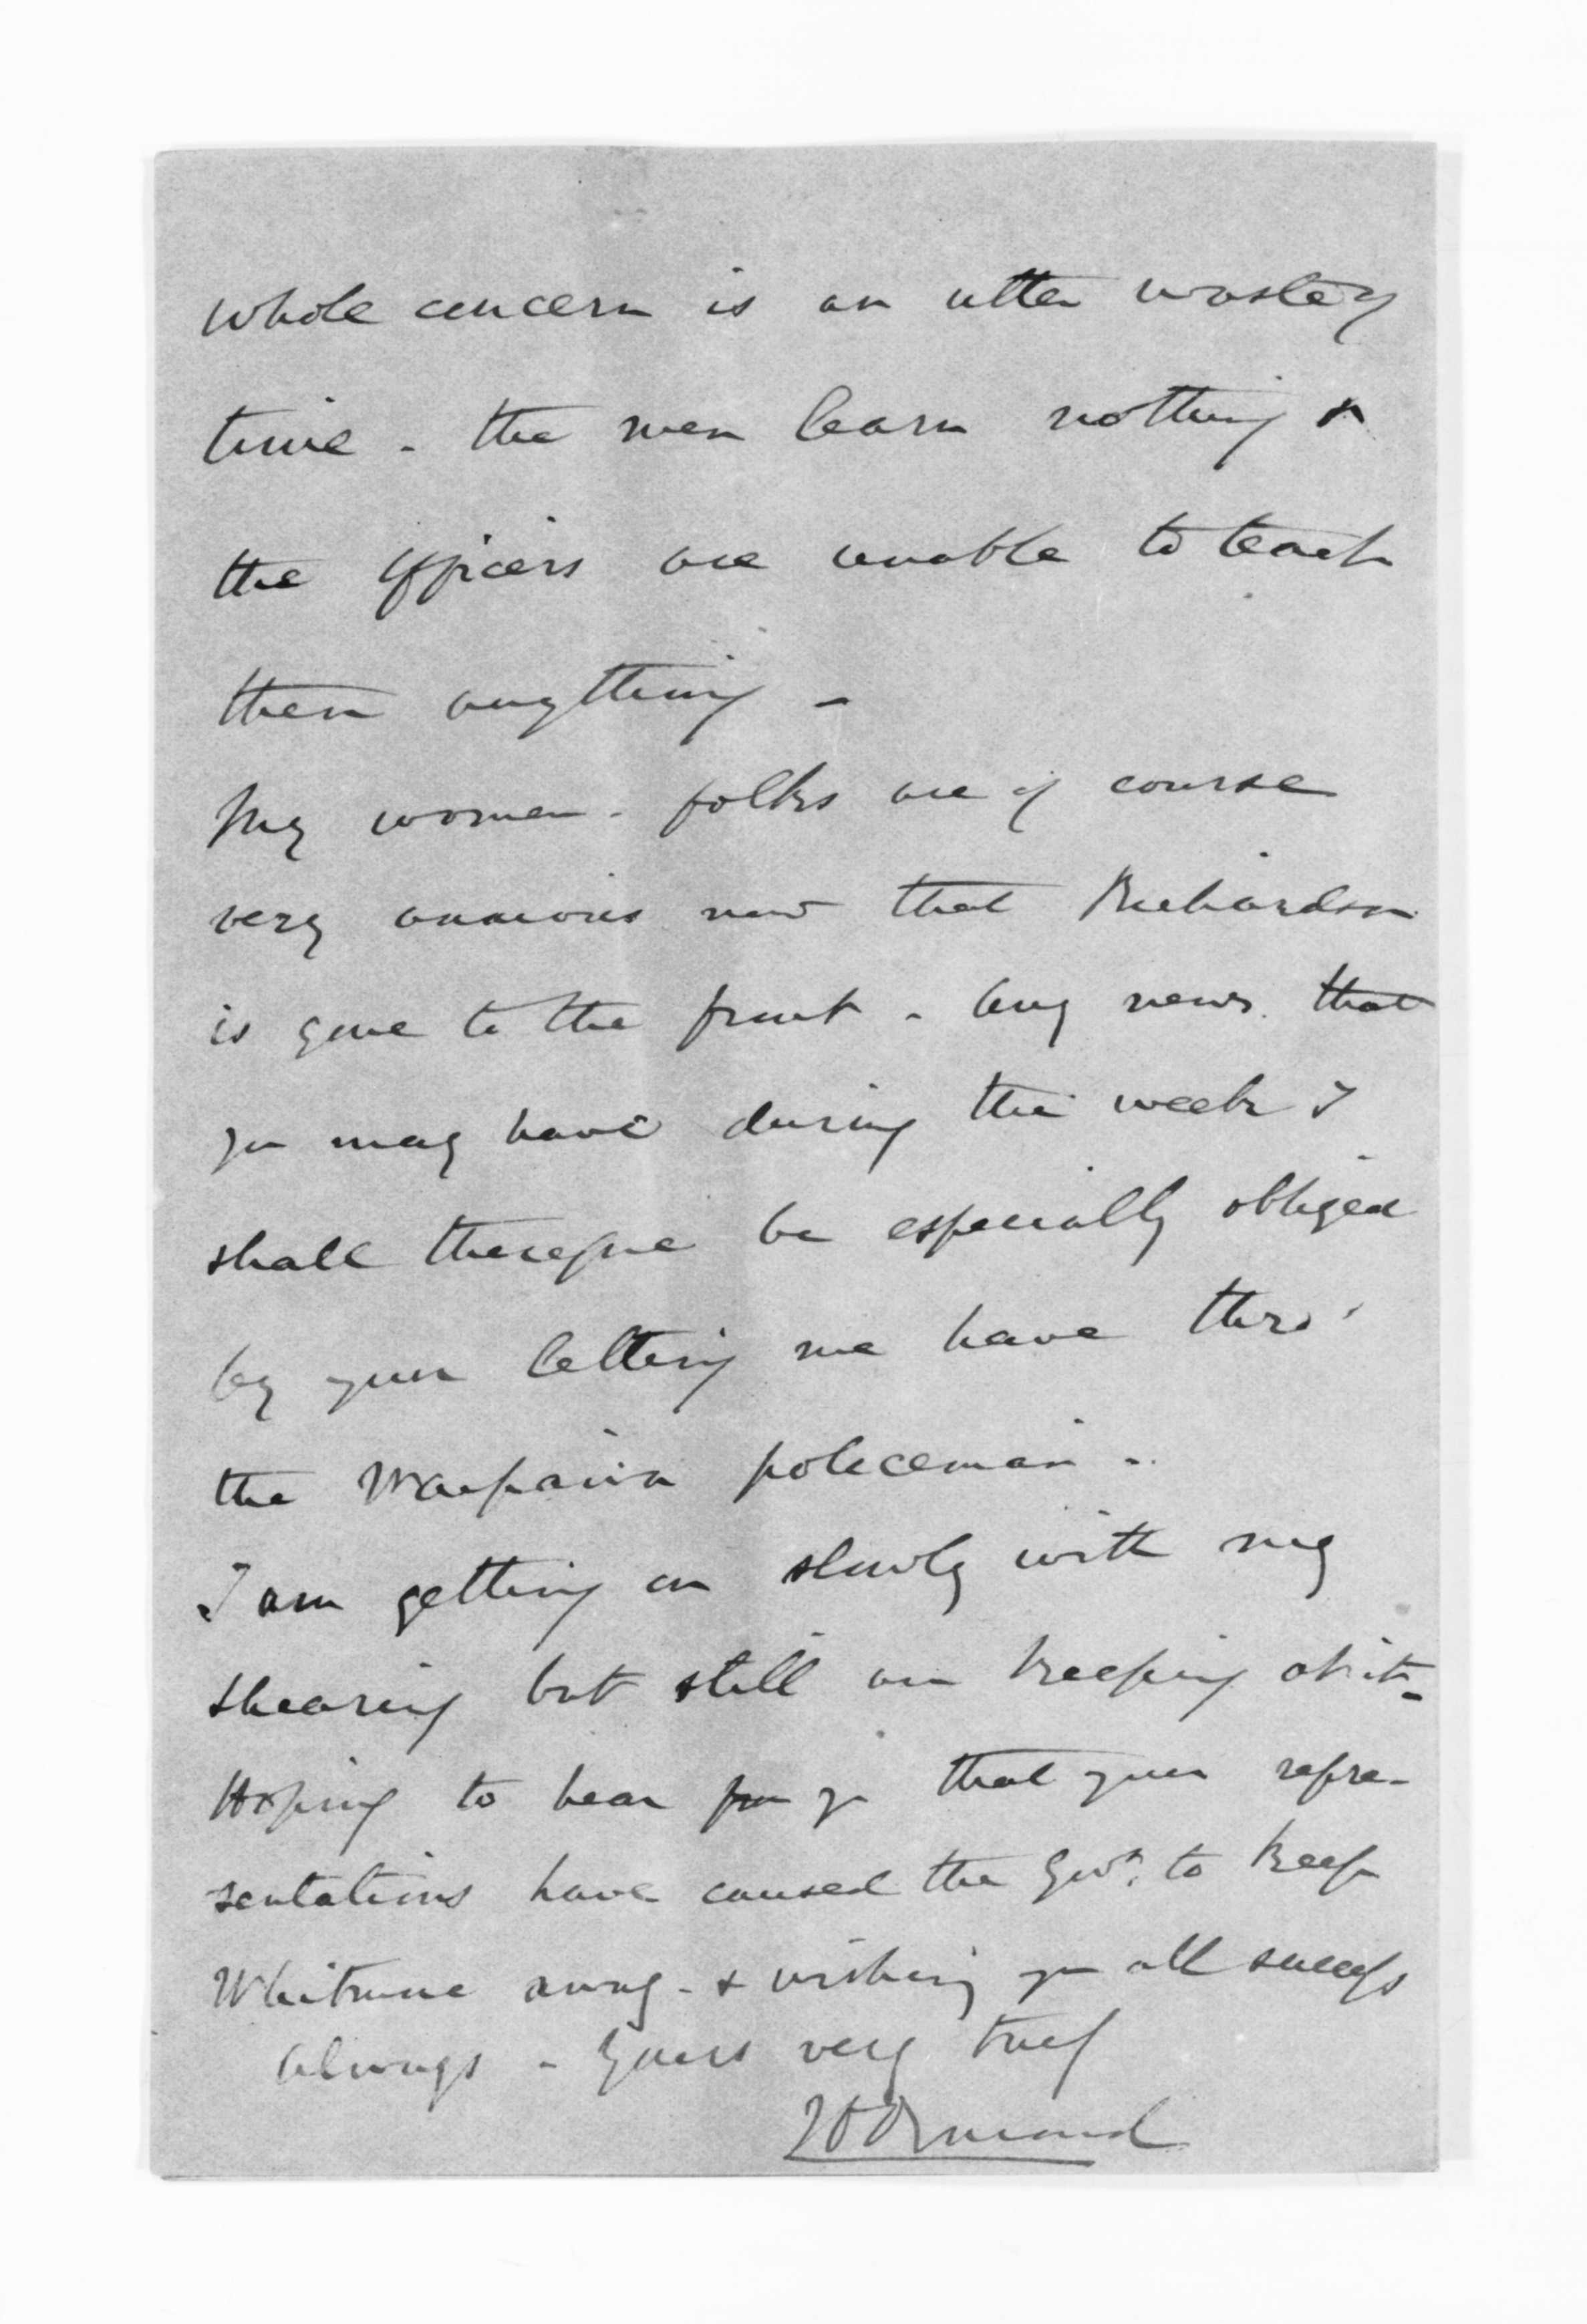 whole concern is an utter waste of
time - the men learn nothing &
the officers are unable to teach
them anything -
My women - folks are of course
very anxious now that Richardson
is gone to the front - Any news that
you may have during the week I
shall therefore be especially obliged
by your letting me have thro'
the Waipawa policeman -
I am getting on slowly with my
shearing but still am keeping at it -
Hoping to hear from you that your repre-
sentations have caused the Govt. to keep
Whitmore away - & wishing you all success
always - Yours very truly
JD Ormond